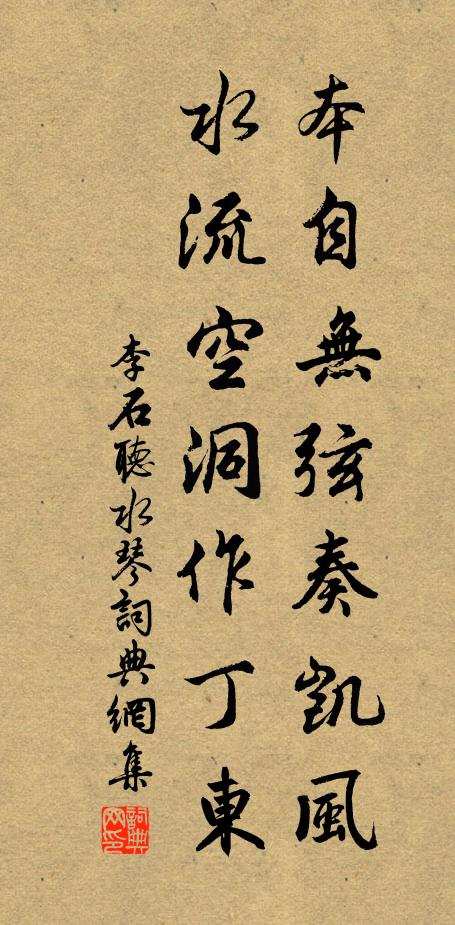 本自無弦奏凱風
水流空洞作丁東
李石聽水琴詞典網集
詞典網印